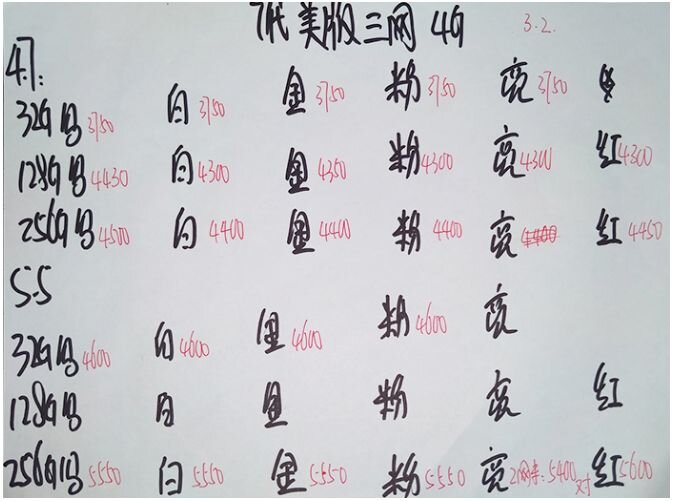 7代 美版三网 4G 3.2.
4.7:
32G 3750 白 3750 金 3750 粉 3750 亮 3750
128G 4430 白 4300 金 4350 粉 4300 亮 4300 红 4300
256G 4500 白 4400 金 4400 粉 4400 亮 红 4450
5.5
32G 4600 白 4600 金 4600 粉 4600 亮
128G 白 金 粉 亮 红
256G 5550 白 5550 金 5550 粉 5550 亮 2网 5400 红 5600